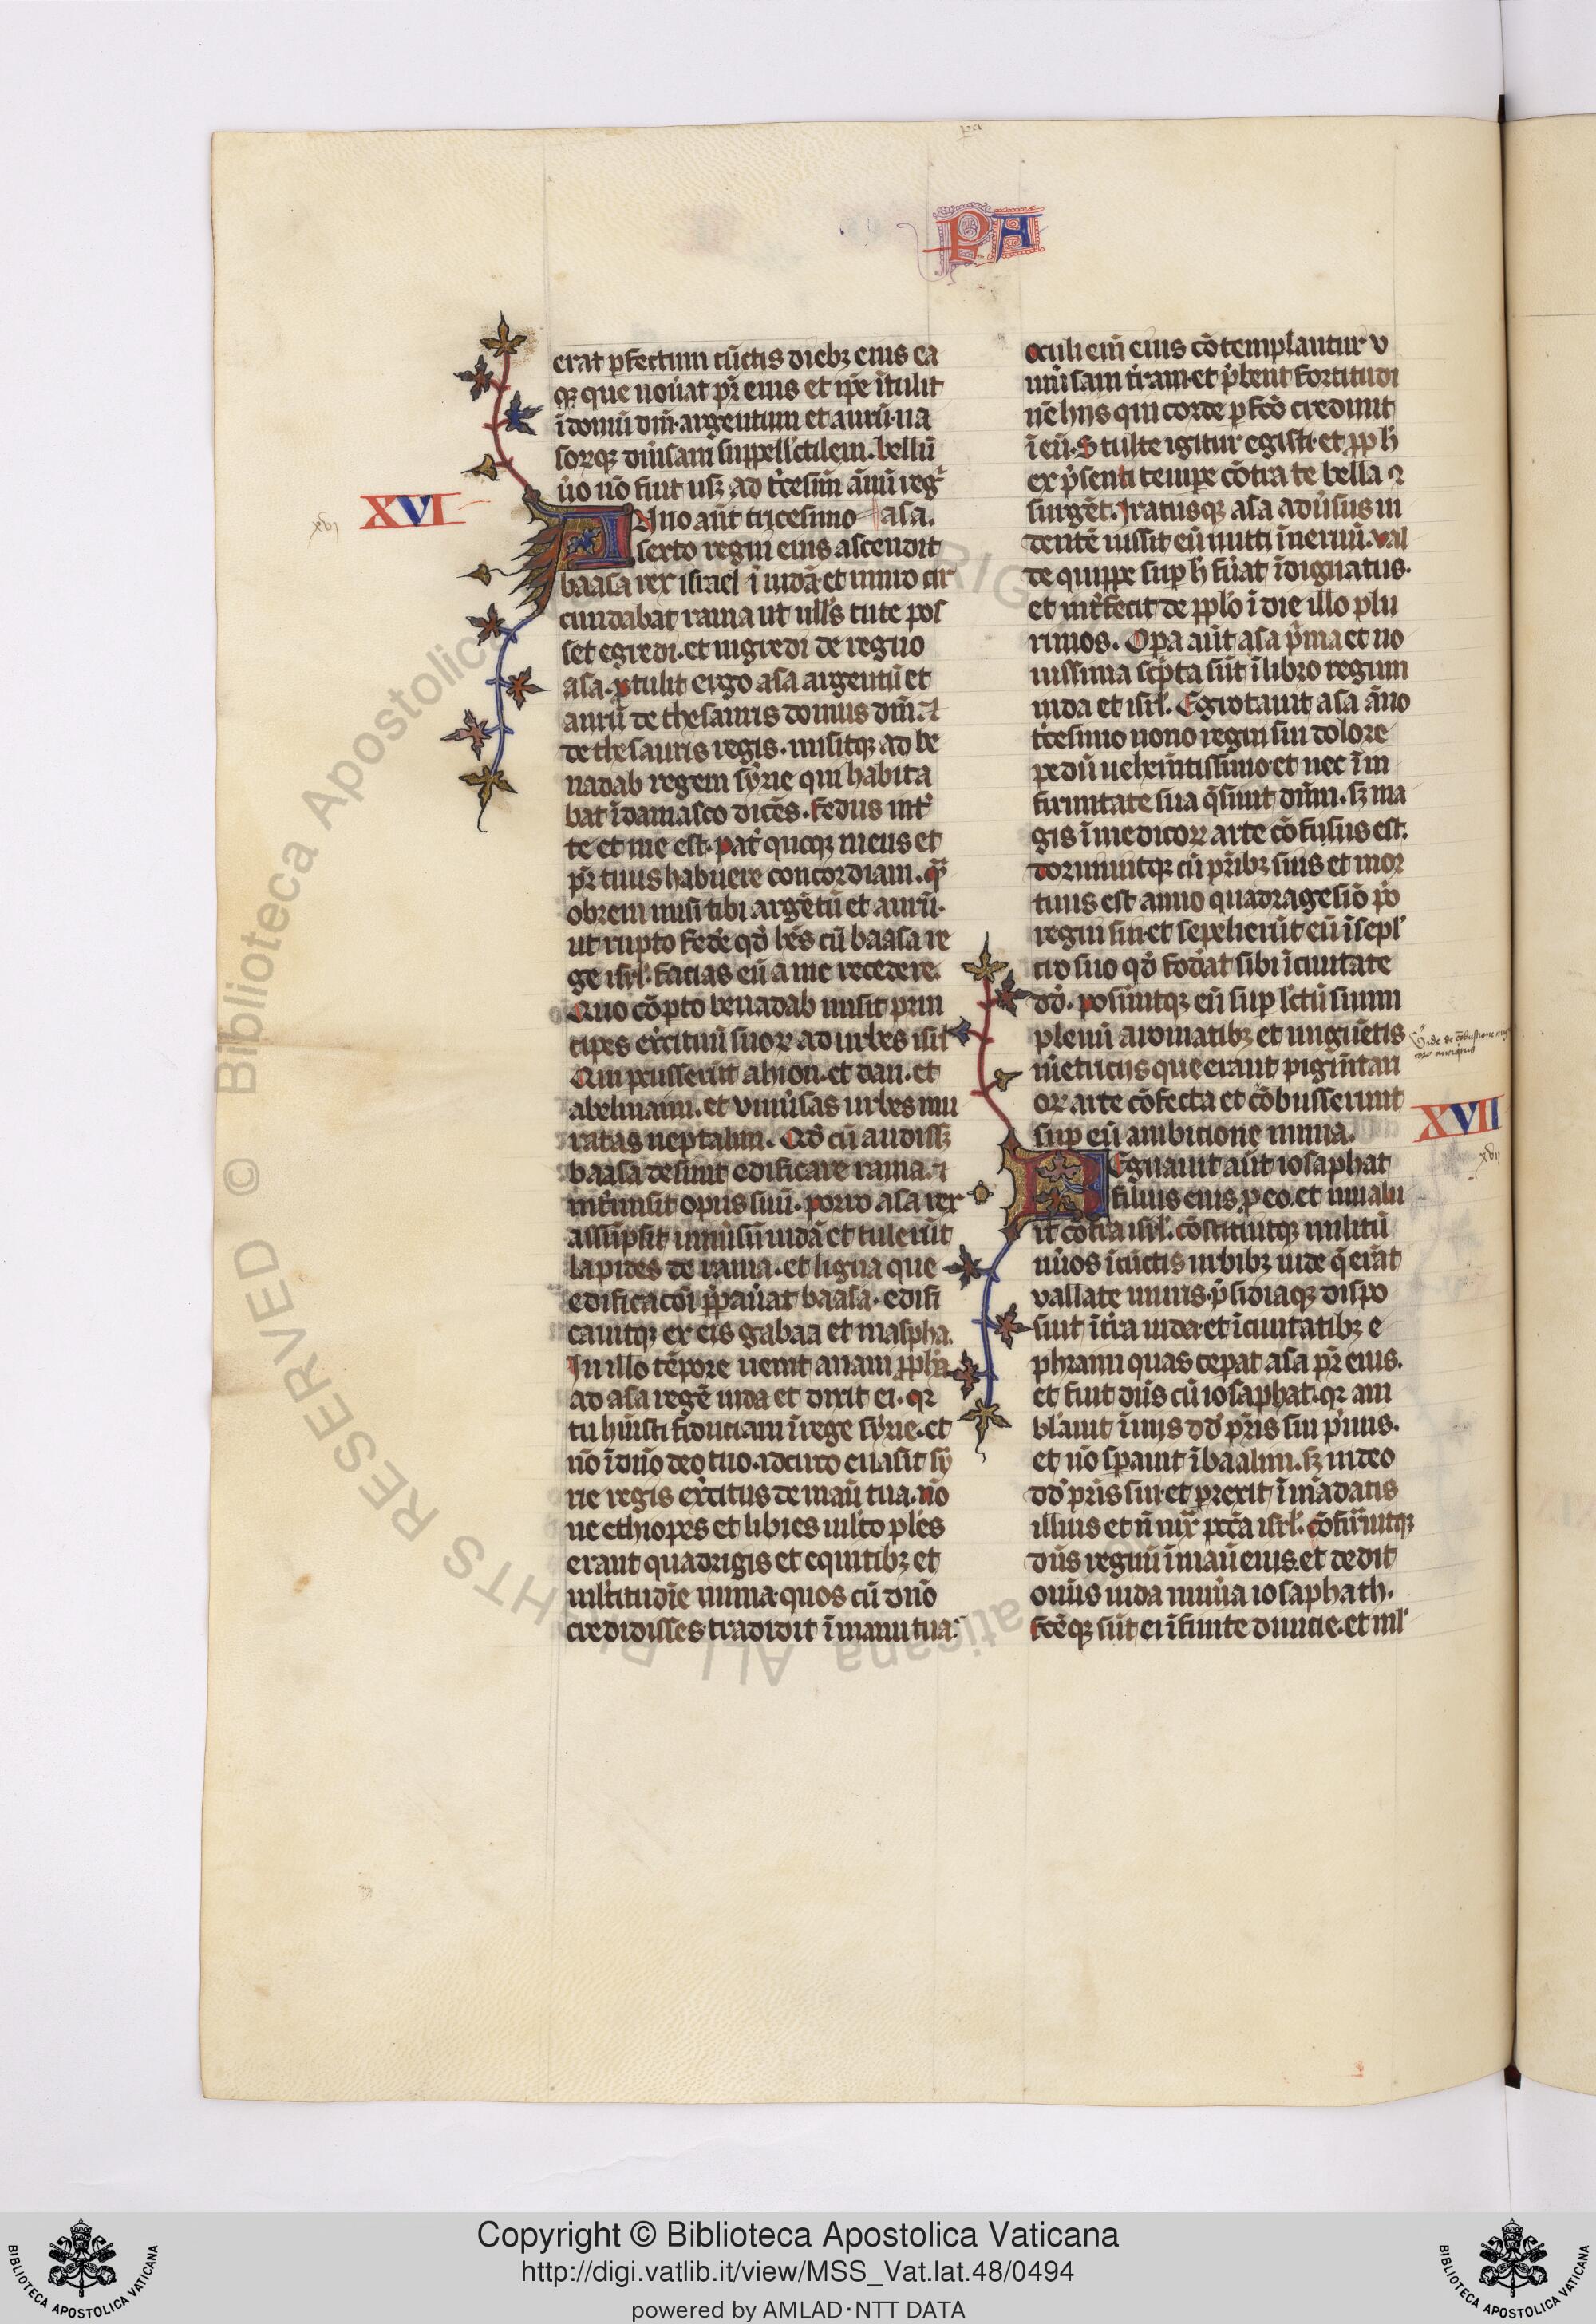 pa
PA
erat ꝑfectum cūctis diebꝫ eius ea
qꝫ que uou̾at pr̄ eius et ip̄e ītulit
ī domū dn̄i. argentum et aurū. ua
sorqꝫ diu̾sam suppell̾ctilem. bellū
u̾o nō fuit usqꝫ ad t̾cesim̄ ānū reg̾
XVI
xvj
ANno aūt tricesimo asa.
sexto regni eius ascendit
baasa rex israel ī iudā. et muro cir
cundabat rama ut ull̾s tute pos
set egredi. et ingredi de regno
asa. ꝓtulit ergo asa argentū et
aurū de thesauris domus dn̄i. et
de thesauris regis. misitqꝫ ad be
nadab regem syrie qui habita
bat ī damasco dicēs. fedus int̾
te et me est. pat̾ quoqꝫ meus et
pr̄ tuus habuere concordiam. qm̄
obrem misi tibi argētū et aurū.
ut rupto fede̾ qd̾ hēs cū baasa re
ge isrl̾. facias eū a me recedere.
Quo cōpto benadab misit prin
cipes ex̾citiū suoꝝ ad urbes isrl̾
Qui ꝑcusserūt ahion. et dan. et
abelmaim. et uniu̾sas urbes mu
ratas neptalim. Qd̾ cū audissꝫ
baasa desiuit edificare rama. et
int̾misit opus suū. porro asa rex
assūpsit uniu̾sū iudā et tulerūt
lapides de rama. et ligna que
edificacōi p̄paūat baasa. edifi
cauitqꝫ ex eis gabaa et maspha.
In illo tēpore uenit anani ꝓph̾a
ad asa regē iuda et dixit ei. qꝛ
tu hūisti fiduciam ī rege syrie. et
nō ī dn̄o deo tuo. idcirco euasit sy
rie regis ex̾citus de manū tua. nō
ne ethiopes et libies ml̾to pl̾es
erant quadrigis et equitibꝫ et
ml̾titudīe nimia. quos cū dn̄o
credidisses. tradidit ī manu tua.
oculi em̄ eius cōtemplantur v
niu̾sam t̾ram. et p̄bent fortitudi
nē hijs qui corde ꝑfc̄o credunt
ī eū. Stulte igitur egisti. et ꝓp h̾
ex p̄senti tempe cōtra te bella ↄ
surgēt. Iratusqꝫ asa adu̾sus ui
dentē iussit eū mitti ī neruū. ual
de quippe suꝑ h̾ fūat īdignatus.
et int̾fecit de ppl̾o ī die illo plu
rimos. Oꝑa aūt asa p̄ma et no
uissima sc̾pta sūt ī libro regum
iuda et isrl̾. Egrotauit asa āno
t̾cesimo nono regni sui dolore
pedū uehem̄tissimo. et nec ī in
firmitate sua q̄siuit dn̄m. sꝫ ma
gis ī medicoꝝ arte cōfusus est.
dormiuitqꝫ cū pr̄ibꝫ suis et mor
tuus est anno quadragesīo p̾o
regni sui. et sepelierūt eū ī sepl̾
cro suo qd̾ fod̾at sibi ī ciuitate
dd̾. posūntqꝫ eū suꝑ l̾ctū suum
plenū aromatibꝫ et unguētis
m̄etriciis que erant pigm̄tari
oꝝ arte cōfecta et cōbusserunt
suꝑ eū ambicione nimia.
XVII
xvij
REgnauit aūt iosaphat
filius eius ꝓ eo. et inualu
it cōtra isrl̾. cōstituitqꝫ militū
nūos ī cūctis urbibꝫ iude q̄ erāt
vallate muris. p̄sidiaqꝫ dispo
suit ī t̾ra iuda. et ī ciuitatibꝫ e
phraim quas cepat asa pr̄ eius.
et fuit dn̄s cū iosaphat. qꝛ am
bl̾auit ī uijs dd̾ pr̄is sui p̄mis.
et nō spauit ī baalim. sꝫ in deo
dd̾ pr̄is sui. et ꝑrexit ī mādatis
illius et n̄ iux̄ pcc̄a isrl̾. cōfirmītqꝫ
dn̄s regnū ī manū eius. et dedit
om̄is iuda mun̄a iosaphath.
fcēqꝫ sūt ei īfinite diuicie. et ml̾
© Biblioteca Apostolica Vaticana ALL RIGHTS RESERVED
Copyright © Biblioteca Apostolica Vaticana
http://digi.vatlib.it/view/MSS_Vat.lat.48/0494
powered by AMLAD·NTT DATA
BIBLIOTECA APOSTOLICA VATICANA
BIBLIOTECA APOSTOLICA VATICANA